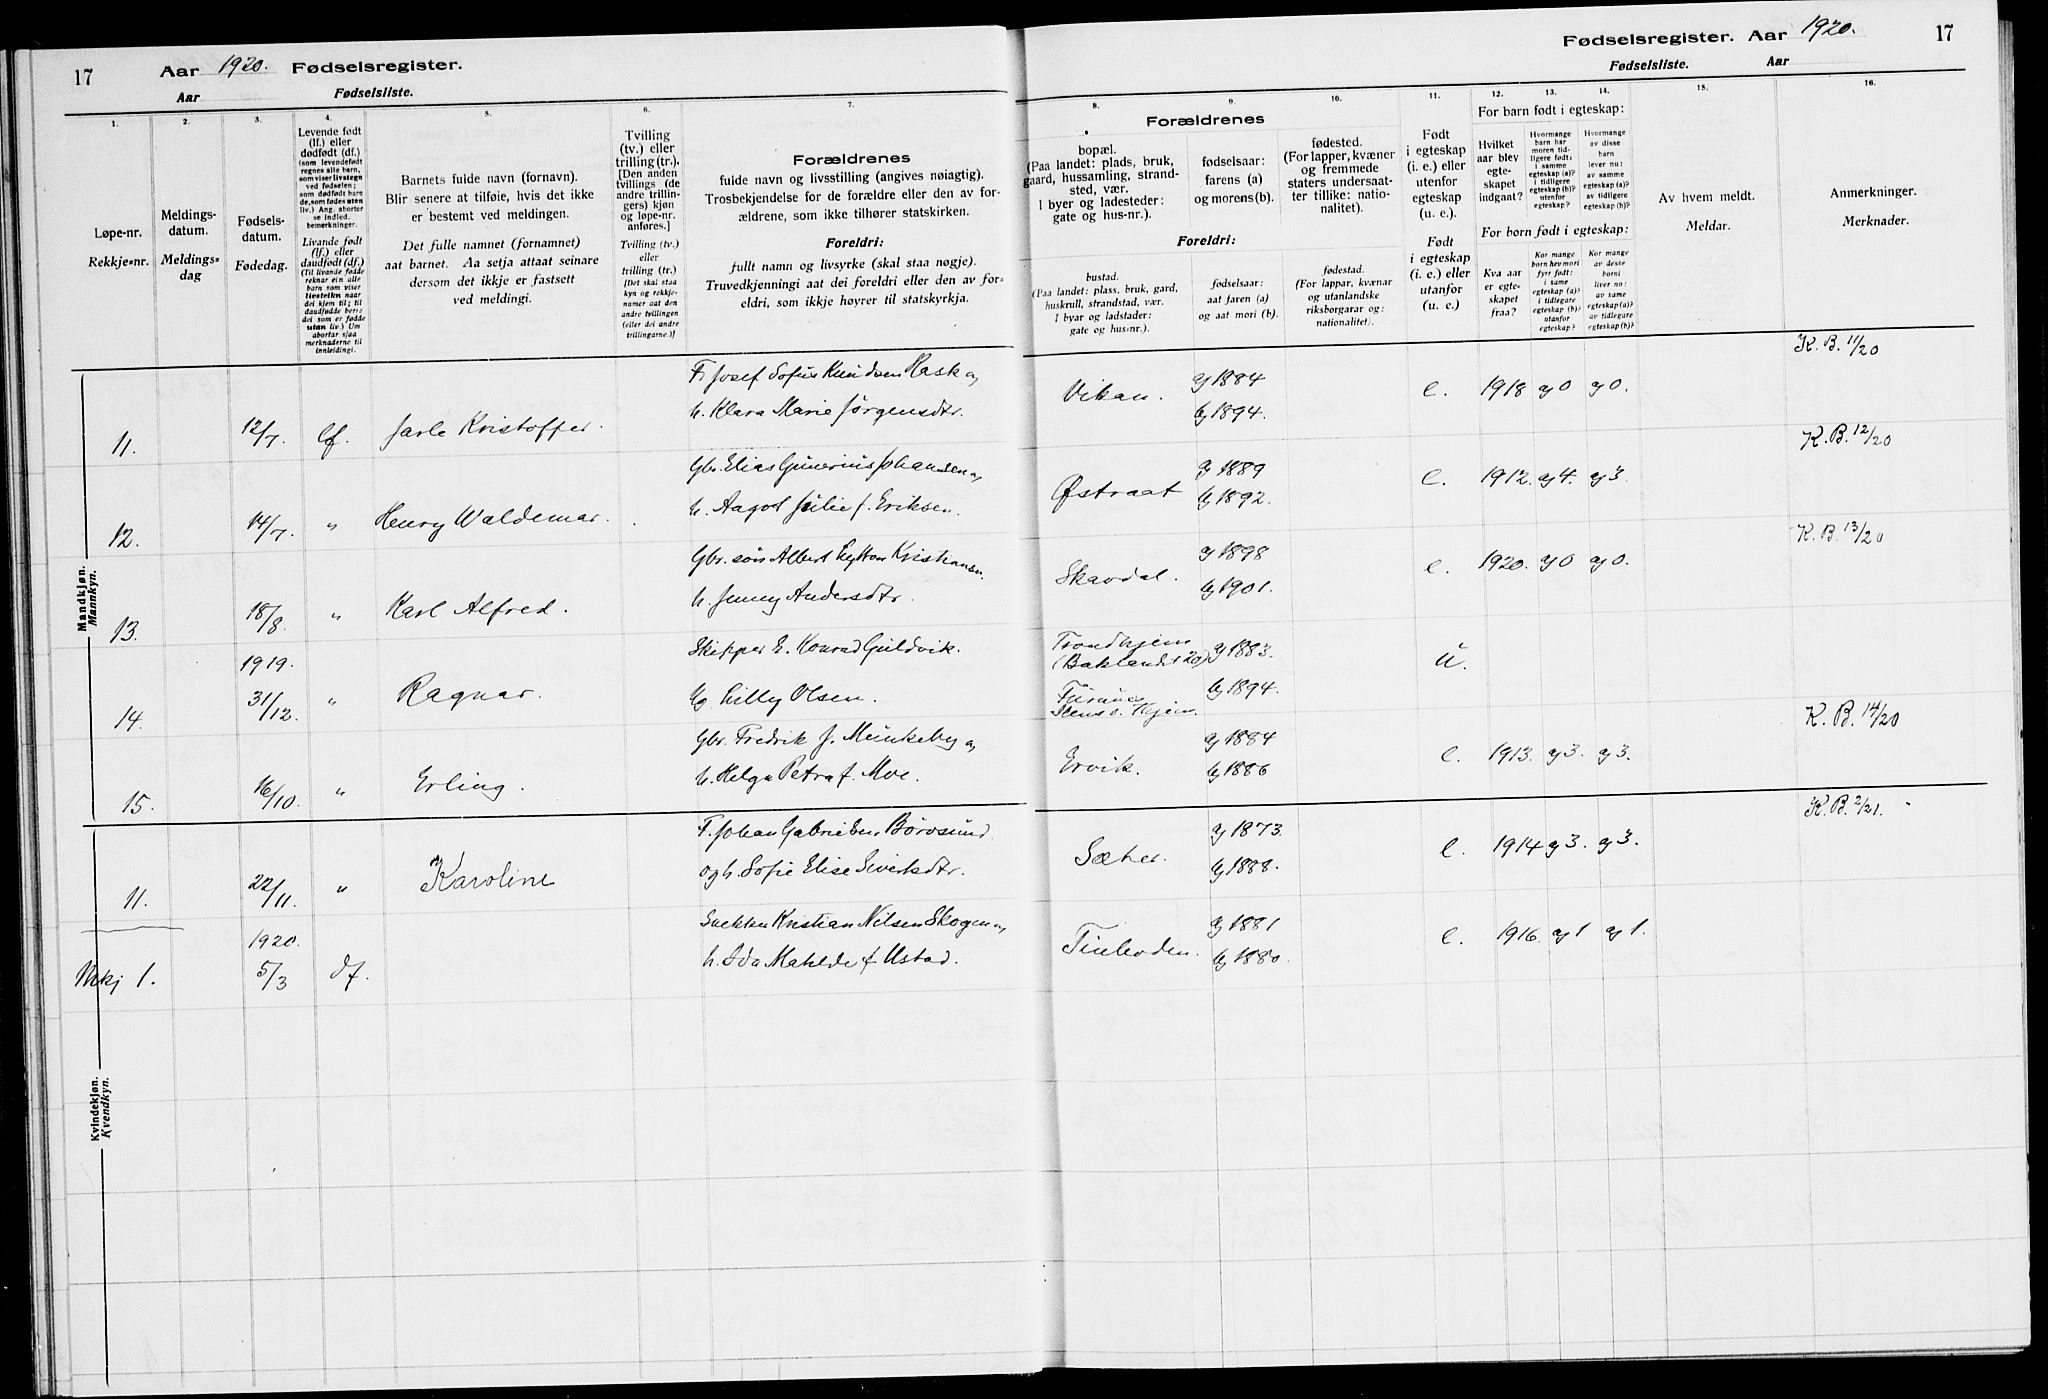 17 Aar 1920. Fødselsregister.
Aar Fødselsliste.
Fødselsregister. Aar 1920. 17
Fødselsliste. Aar
1.
Løpe-nr.
Rekkje-nr.
2.
Meldings-
datum.
Meldings-
dag
3.
Fødsels-
datum.
Fødedag.
4.
Levende født
(lf.) eller
dødfødt (df.)
(som levendefødt
regnes alle barn,
som viser livstegn
ved fødselen;
som dødfødt bare
de, som fødes uten
liv.) Ang. aborter
se indled.
bemerkninger.
Livande født
(lf.) eller
daudfødt (df.)
(Til livande fødde
reknar ein alle
barn som viser
livsteikn naar
dei kjem til; til
daudfødde berre
dei som er fødde
utan liv.) Um
abortar sjaa
merknaderne til
innleidingi.
5.
Barnets fulde navn (fornavn).
Blir senere at tilføie, hvis det ikke
er bestemt ved meldingen.
Det fulle namnet (fornamnet)
aat barnet. Aa setja attaat seinare
dersom det ikkje er fastsett
ved meldingi.
6.
Tvilling
(tv.) eller
trilling (tr.).
[Den anden
tvillings (de
andre trillin-
gers) kjøn
og løpe-nr.
anføres.]
Tvilling (tv.)
eller
trilling (tr.)
[Det skal staa
kyn og rekkje-
numer aat den
andre tvillingen
(eller dei andre
trillingarne.)]
7.
Forældrenes
fulde navn og livsstilling (angives nøiagtig).
Trosbekjendelse for de forældre eller den av for-
ældrene, som ikke tilhører statskirken.
Foreldri:
fullt namn og livsyrke (skal staa nøgje).
Truvedkjenningi aat dei foreldri eller den av for-
eldri, som ikkje høyrer til statskyrkja.
Forældrenes
8.
bopæl.
(Paa landet: plads, bruk,
gaard, hussamling, strand-
sted, vær.
I byer og ladesteder:
gate og hus-nr.).
9.
fødselsaar:
farens (a)
og morens (b).
10.
fødested.
(For lapper, kvæner
og fremmede
staters undersaat-
ter tillike: natio-
nalitet).
Foreldri:
bustad.
(Paa landet: plass, bruk, gard,
huskrull, strandstad, vær.
I byar og ladstader:
gate og hus-nr.).
fødselsaar:
aat faren (a)
og aat mori (b).
fødestad.
(For lappar, kvænar
og utanlandske
riksborgarar og:
nationalitet).
11.
Født
i egteskap
(i. e.) eller
utenfor
egteskap
(u. e.).
Født
i egteskap
(i. e.) eller
utanfor
(u. e.)
12. 13. 14.
For barn født i egteskap:
Hvilket
aar blev
egte-
skapet
indgaat?
Hvormange
barn har
moren tid-
ligere født:
i samme
egteskap (a)?
i tidligere
egteskap (b)?
utenfor
egteskap?
Hvormange
av disse
barn
lever nu:
av samme
egteskap (a)?
av tidligere
egteskap (b)?
For born født i egteskap:
Kva aar
er egte-
skapet
fraa?
Kor mange
born hev mori
fyrr født:
i same
egteskap (a)?
i tidlegare
egteskap (b)?
utanfor
egteskap?
Kor mange
av desse
borni
liver no:
av same
egteskap (a)?
av tidlegare
egteskap (b)?
15.
Av hvem meldt.
Meldar.
16.
Anmerkninger.
Merknader.
Mandkjøn.
Mannkyn.
F. Josef Sofus Knudsen Rask og a) 1884 K. B. 11/20
11. 12/7. lf. Jarle Kristoffer. h. Klara Marie Jørgensdtr. Vikan. b) 1894. e. 1918 a) 0 a) 0.
Gbr. Elias Gunerius Johansen og a) 1889 K. B. 12/20
12. 14/7. " Henry Waldemar. h. Aagot Julie f. Eriksen. Østraat b) 1892. e. 1912. a) 4. a) 3.
Gbr. søn Albert Kristiansen a) 1898 K. B. 13/20
13. 18/8. " Karl Alfred. h. Jenny Andersdtr. Skavdal. b) 1901. e. 1920. a) 0 a) 0.
1919. Skipper E. Konrad Guldvik. Trondhjem (Baklandet 20) a) 1883. u.
14. 31/12. " Ragnar. Ug. Lilly Olsen. b) 1894.
Gbr. Fredrik J. Munkeby og a) 1884 K. B. 14/20
15. 16/10. " Erling. h. Helga Petra f. Moe. Ervik. b) 1886 e. 1913. a) 3. a) 3.
Kvindekjøn.
Kvendkyn.
F. Johan Gabrielsen Børøsund a) 1873. K. B. 2/21.
11. 22/11. " Karoline og h. Sofie Elise Sivertsdtr. Sæter. b) 1888. e. 1914 a) 3. a) 3.
1920. Kristian Nilsen Skogen og a) 1881
Mkj 1. 5/3 df. h. Ida Matilde f. Ustad. b) 1880. e. 1916. a) 1 a) 1.